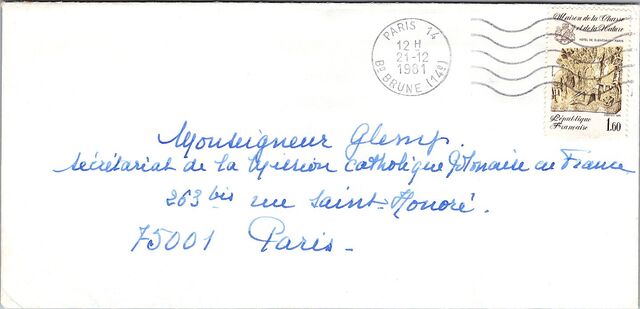 PARIS 14
12 H
21-12
1981
Bd BRUNE (14e)
Maison de la Chasse
et de la Nature
HÔTEL DE GUÉNÉGAUD - PARIS
République
Française
1.60
Monseigneur Glemp.
Secrétariat de la Mission Catholique Polonaise en France
263 bis rue Saint-Honoré.
75001 Paris-